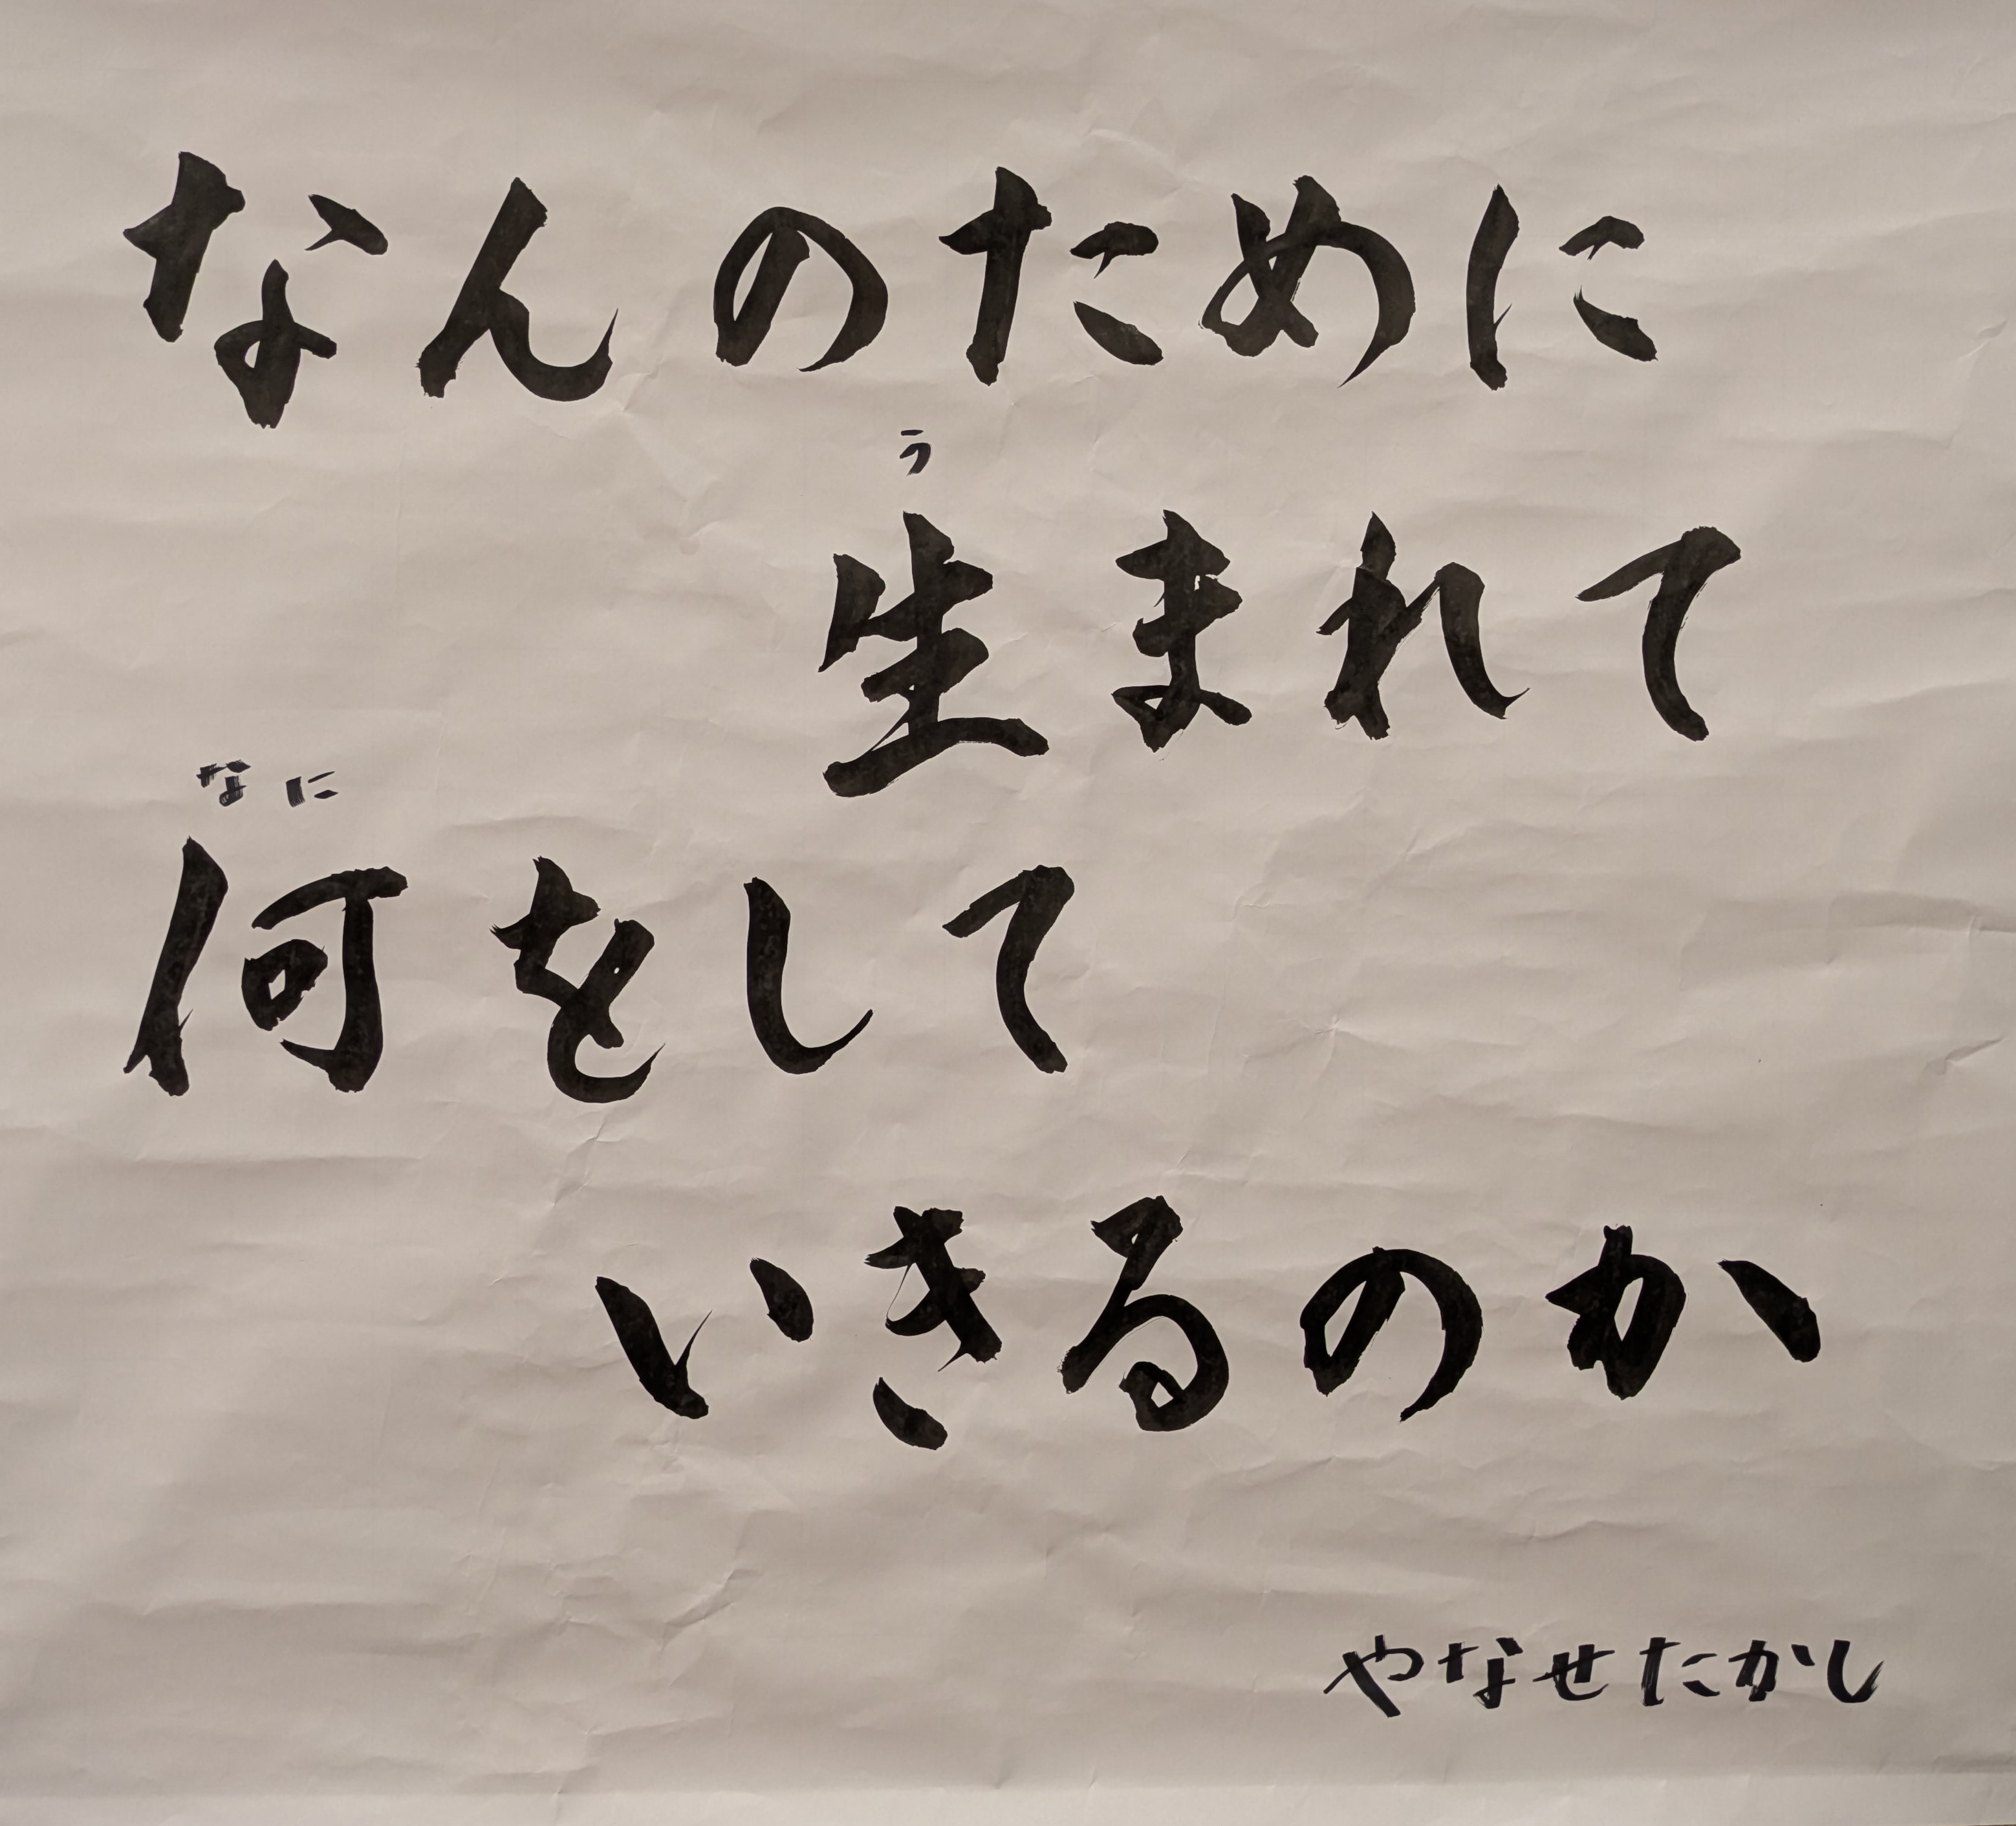 なんのために
う
生まれて
なに
何をして
いきるのか
やなせたかし